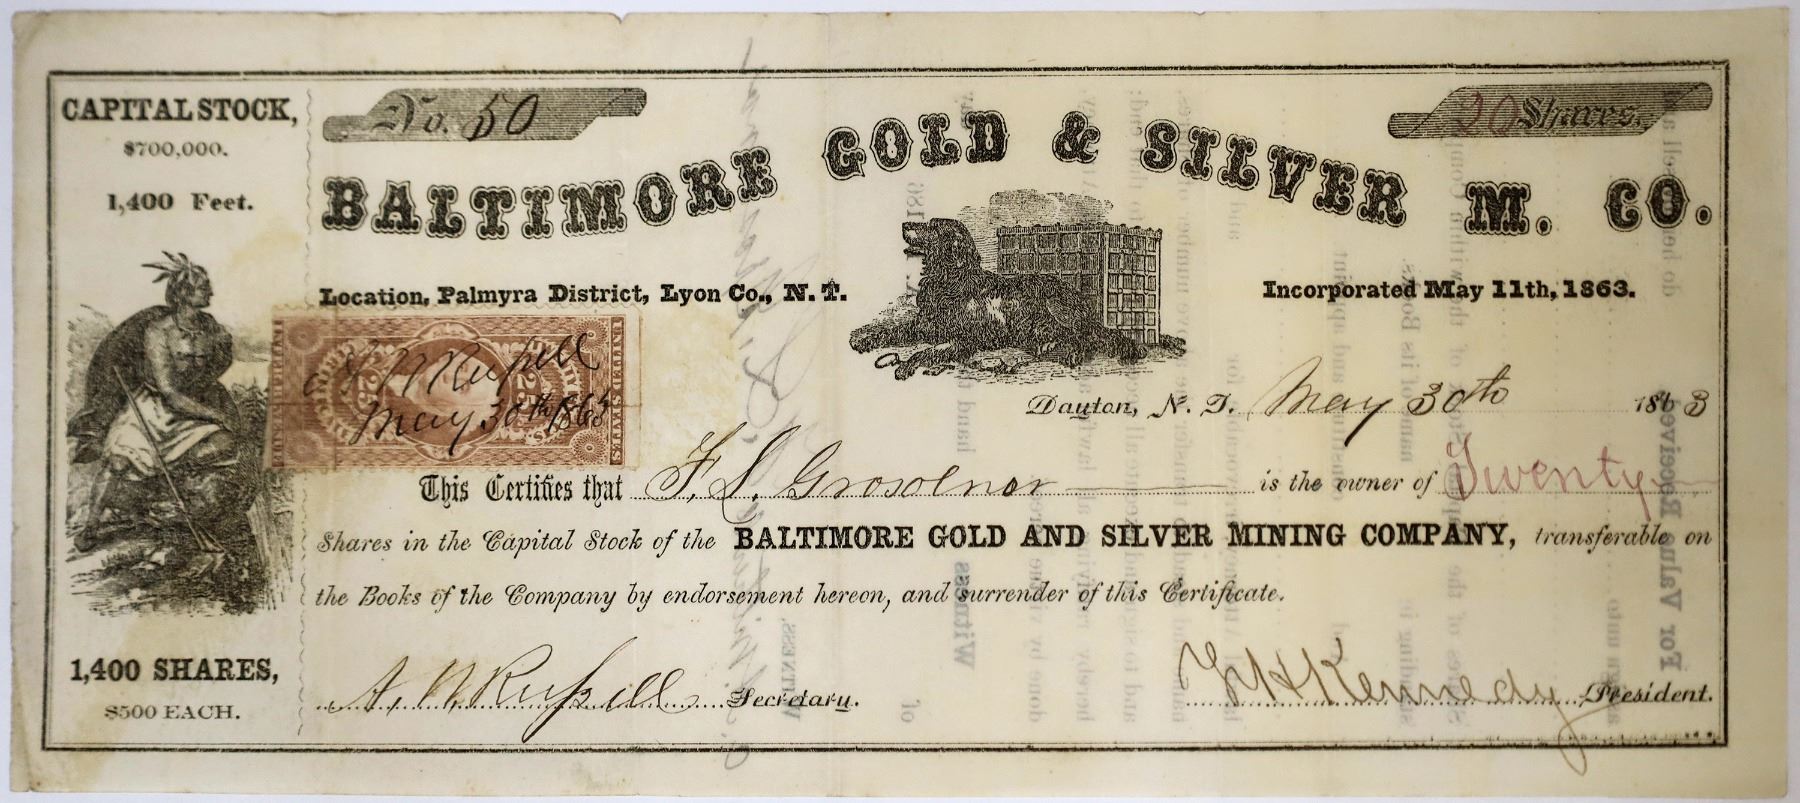 CAPITAL STOCK,
$700,000.
1,400 Feet.
No. 50
20 Shares.
BALTIMORE GOLD & SILVER M. CO.
Location, Palmyra District, Lyon Co., N. T.
Incorporated May 11th, 1863.
UNITED STATES
25
A N Russell
May 30th 1863
Dayton, N. T. May 30th 1863
This Certifies that F. L. Grosvenor is the owner of Twenty
Shares in the Capital Stock of the BALTIMORE GOLD AND SILVER MINING COMPANY, transferable on
the Books of the Company by endorsement hereon, and surrender of this Certificate.
1,400 SHARES,
$500 EACH.
A. N Russell Secretary.
Kennedy President.